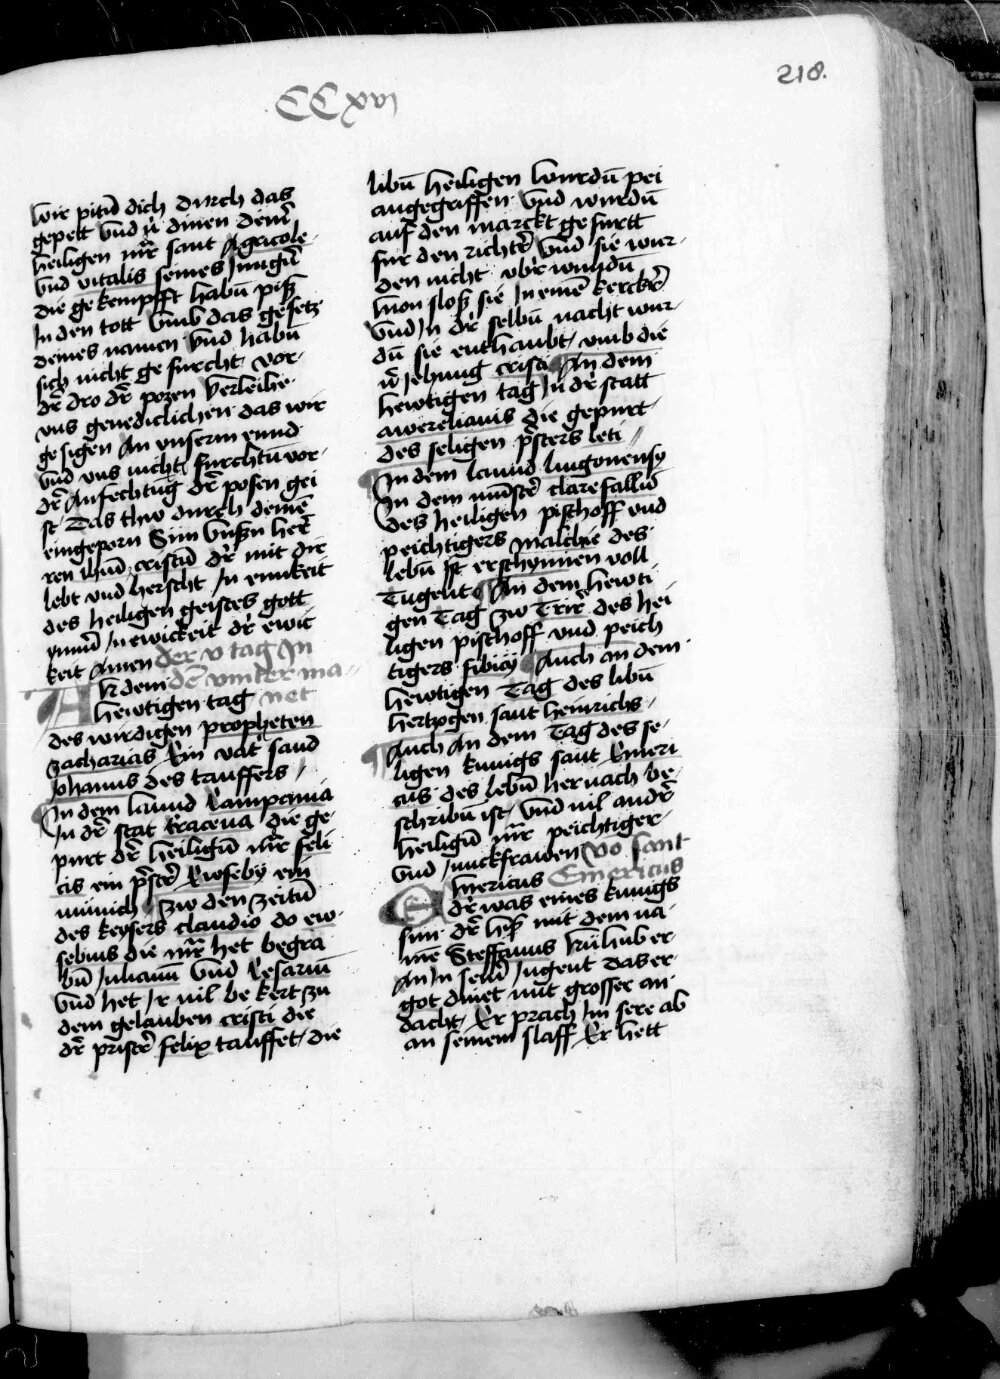 218.
CCxvj
wir pitn̄ dich durch das
gepett vnd v̄dinen deinr̄
heiligen mr̄ sant Agricole
vnd vitalis seines Jungn̄
die gekempfft habn̄ piß
In den tott vmb das gesetz
deines namen vnd habn̄
sich nicht gefurcht vor
dr̄ dro dr̄ pozen verleihe
vns genediclichen das wir
gesigen An vnserm veind
vnd vns nicht furchtn̄ vor
dr̄ Anfechtūg dr̄ posen gei
st Das thw durch deinē
eingeporn Sun vnßn̄ her̄
ren ihm̄ cristū dr̄ mit dir
lebt vnd herscht In einikeit
des heiligen geistes gott
ymm̄ In ewickeit dr̄ ewic
keit Amen der v tag In
An dem dē winter ma
hewtigen tag net
des wirdigen propheten
Zacharias Ein vatr̄ sand
Johanns des tauffers
In dem lannd Campania
In dr̄ stat tracena die ge
purt dr̄ heilign̄ mr̄ feli
cis ein pr̄ster̄ Ewseby ein
münich Zw den zeitn̄
des keysers claudio do ew
sebius die mr̄ het begra
bn̄ Julianū vnd Cesariū
vnd het Ir vil bekert zu
dem gelauben cristi die
dr̄ prister̄ felix tauffet die
libn̄ heiligen wurdn̄ pei
angegraffen vnd wurdn̄
auf den marckt gefurtt
fur den richtr̄ vnd sie wur
den nicht vbr̄wundn̄
Mon sloß sie In einē kerckr̄
vnd In dr̄ selbn̄ nacht wur
dn̄ sie enthaubt vmb die
v̄Jehung cristi An dem
hewtigen tag In dr̄ statt
awrelianis die gepurt
des seligen pr̄sters leti
In dem lannd lingonensy
In dem mūster̄ clarefallū
des heiligen pischoff vnd
peichtigers malchie des
lebn̄ ist erschynnen voll
Tugent An dem hewti
gen Tag zw Trir̄ des hei
ligen pischoff vnd peich
tigers fibicij Auch an dem
hewtigen Tag des libn̄
hertzogen sant heinrichs
Auch An dem Tag des se
ligen kunigs sant Emeri
cus des lebn̄ hernach be
schribn̄ ist vnd vil andr̄
heilign̄ mr̄ peichtiger
vnd Junckfrawen Vo sant
Emericus Emericus
dr̄ was eines kunigs
sun dr̄ hiß mit dem na
mē Steffanus
An In seinr̄ Jugent das er
got dinet mit grosser an
dacht Er prach Im sere ab
an seinem slaff Er hett